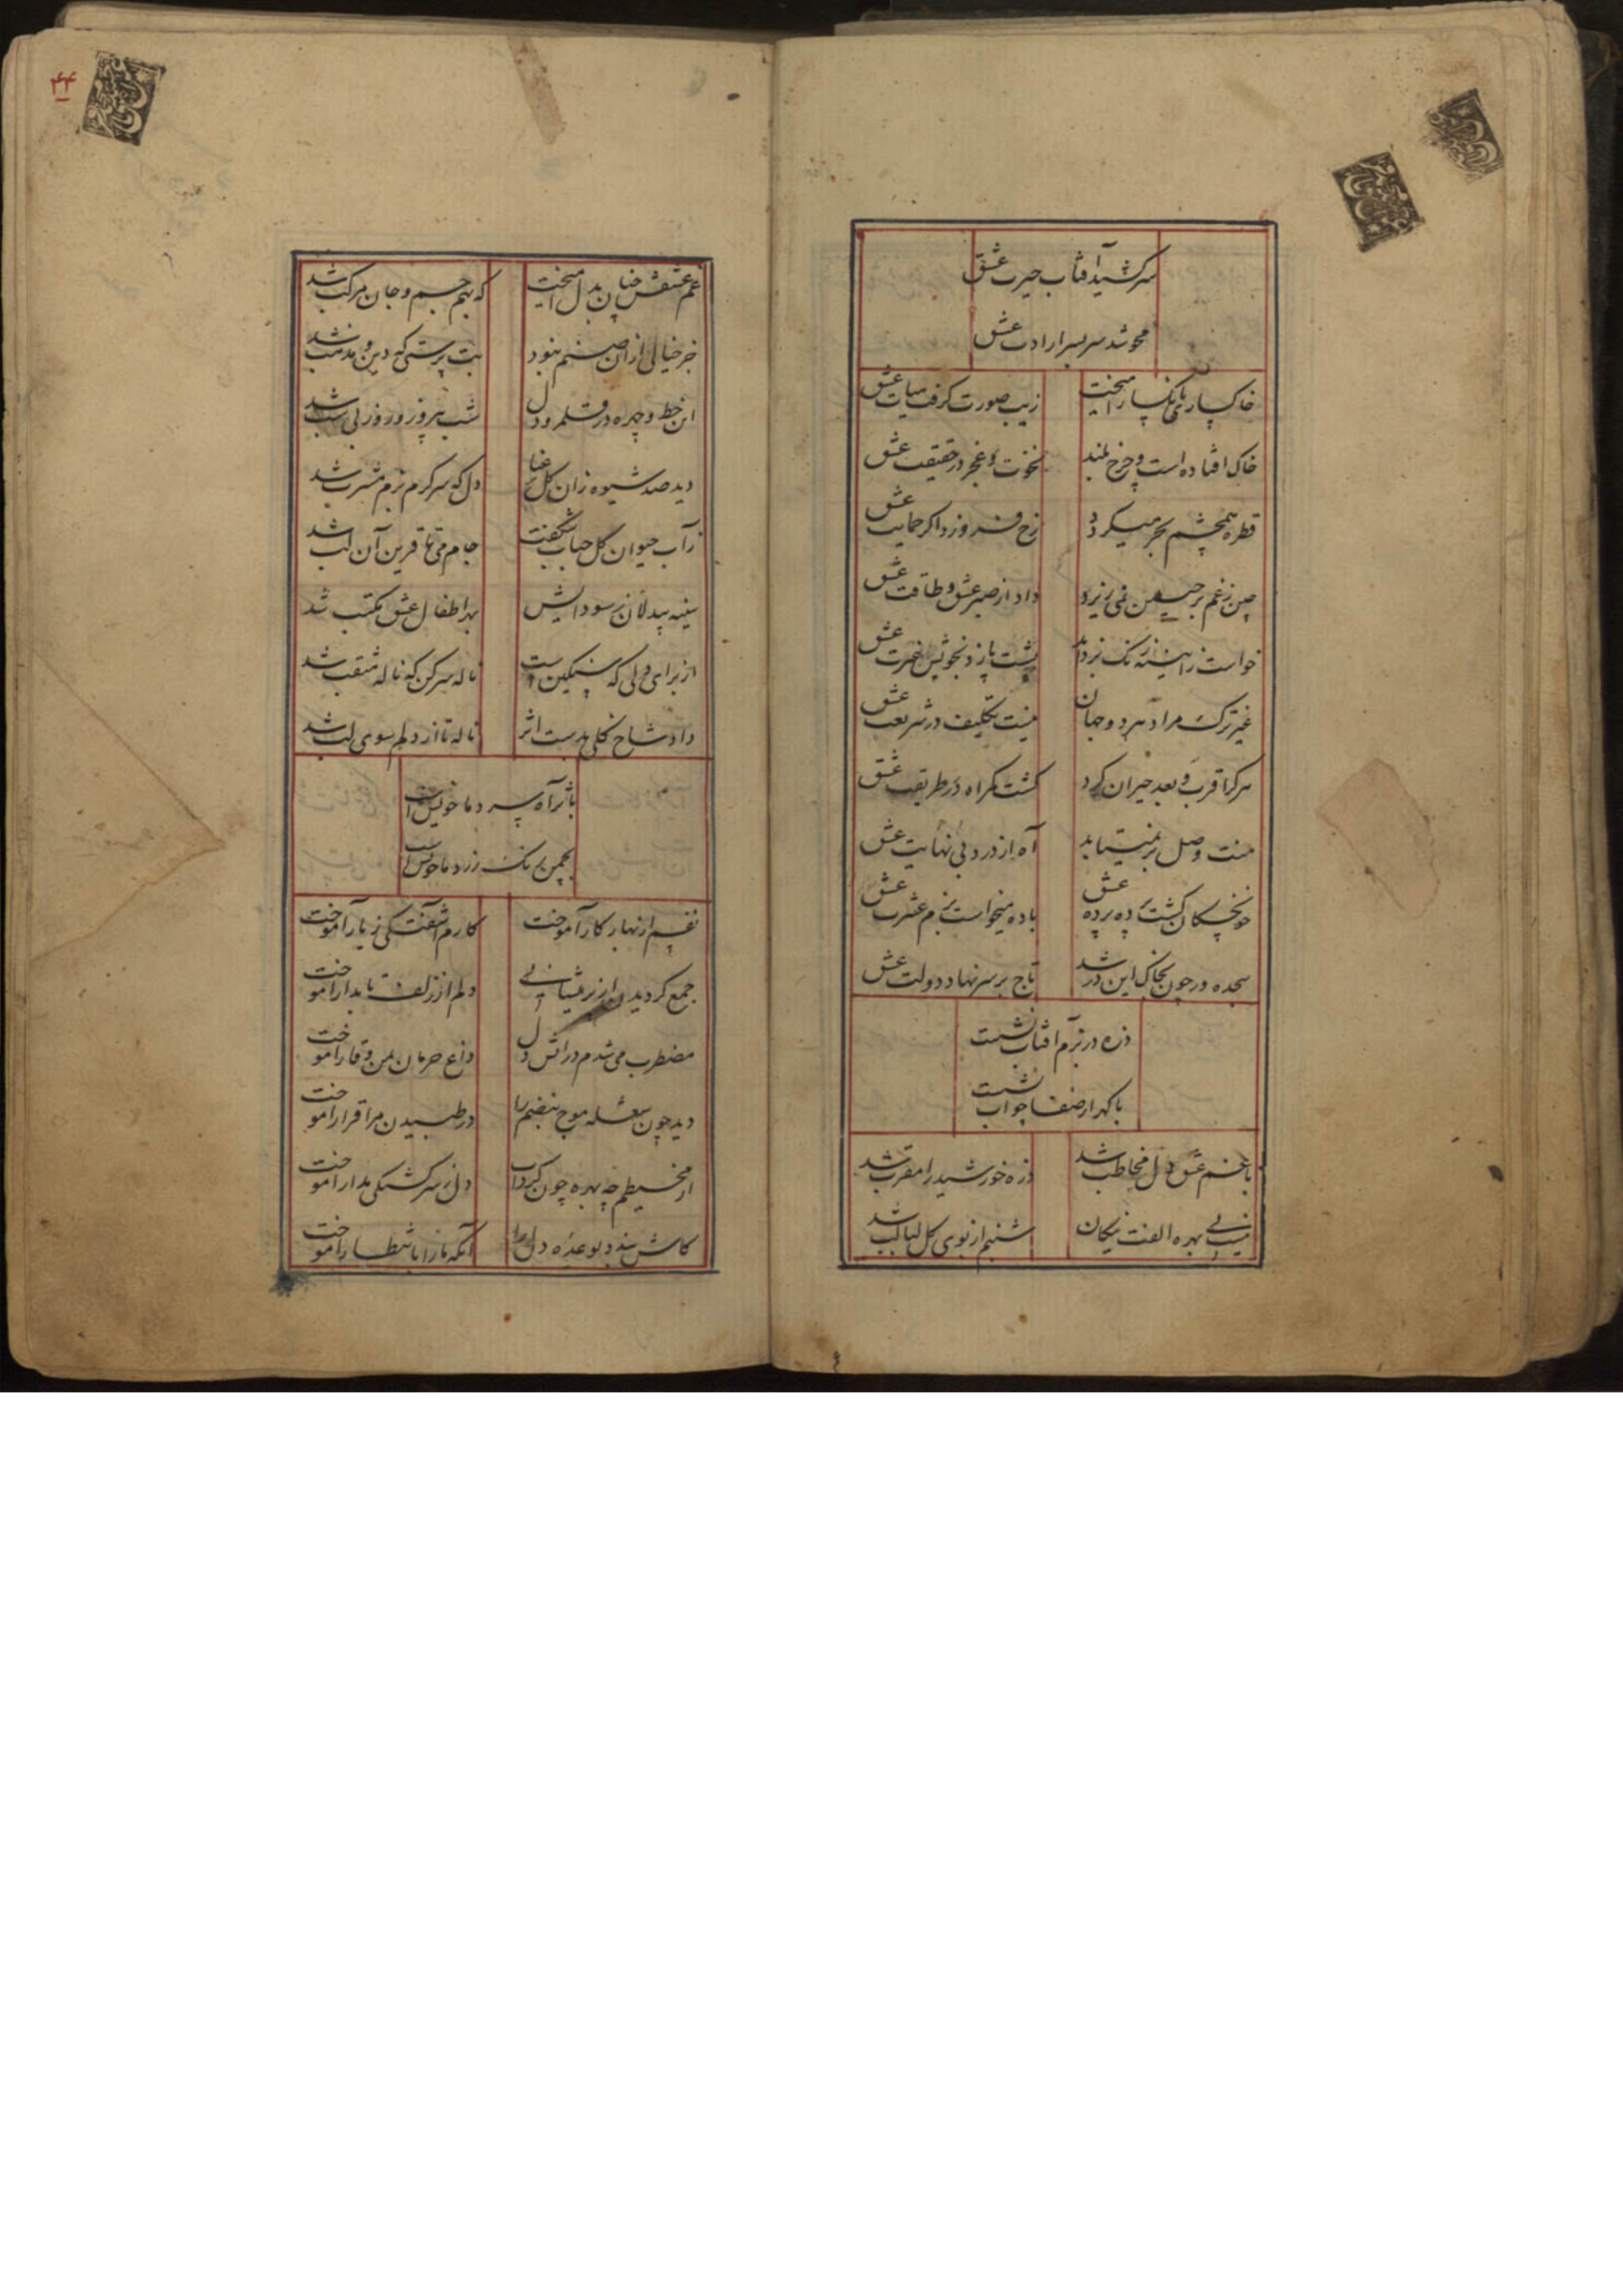 سر کشید آفتاب حیرت عشق
محو شد سر بسر ارادت عشق
خاکساری بانکسار آمیخت زیب صورت گرفت سیات عشق
خاک افتاده است و چرخ بلند نخوت و عجز در حقیقت عشق
قطره همچشم بحر میکردد رخ فروزد اکر حمایت عشق
چین زغم بر جبین نمی ریزد داد از صبر عشق و طاقت عشق
خواست زایینه زنک بزداید پشت پا زد بخویش غیرت عشق
غیر ترک مراد هر دو جهان نیست تکلیف در شریعت عشق
هر کرا قرب و بعد حیران کرد کشت کمراه در طریقت عشق
منت وصل بر نمیتابد آه از درد بی نهایت عشق
خونچکان کشت پرده پرده عشق باده میخواست بزم عشرت عشق
سجده ور چون بخاک این در شد تاج بر سر نهاد دولت عشق
ذره در بزم آفتاب نشست
با کهر از صفا جواب نشست
با غم عشق دل مخاطب شد ذره خورشید را مقرب شد
نیست بی بهره الفت نیکان شبنم از بوی کل لبالب شد
۴۴
غم عشقش چنان بدل آمیخت که بهم جسم و جان مرکب شد
جز خیالی از آن صنم نبود بت پرستی که دین و مذهب شد
از خط و چهره در قلمرو دل شب پروز و روز بی شب شد
دید صد شیوه زان کل رعنا دل که سرکرم بزم مشرب شد
ز آب حیوان کل حباب شکفت جام می تا قرین آن لب شد
سینه بیدلان ز سودایش بهر اطفال عشق مکتب شد
از برای دلی که سنگین است ناله سر کن که ناله مثقب شد
داد شاخ کلی بدست اثر ناله تا از دلم سوی لب شد
باثر آه سرد ما خویش است
بچمن رنک زرد ما خویش است
نفسم از بهار کار آموخت کارم آشفتکی ز یار آموخت
جمع کردیدن از پریشانی دلم از زلف تابدار آموخت
مضطرب می شدم در آتش دل داغ حرمان بمن وقار آموخت
دید چون شعله موج نبضم را در طپیدن مرا قرار آموخت
از محیطم چه بهره چون کرداب دل ز سرکشتکی مدار آموخت
کاش بندد بوعده دل را آنکه ما را بانتظار آموخت